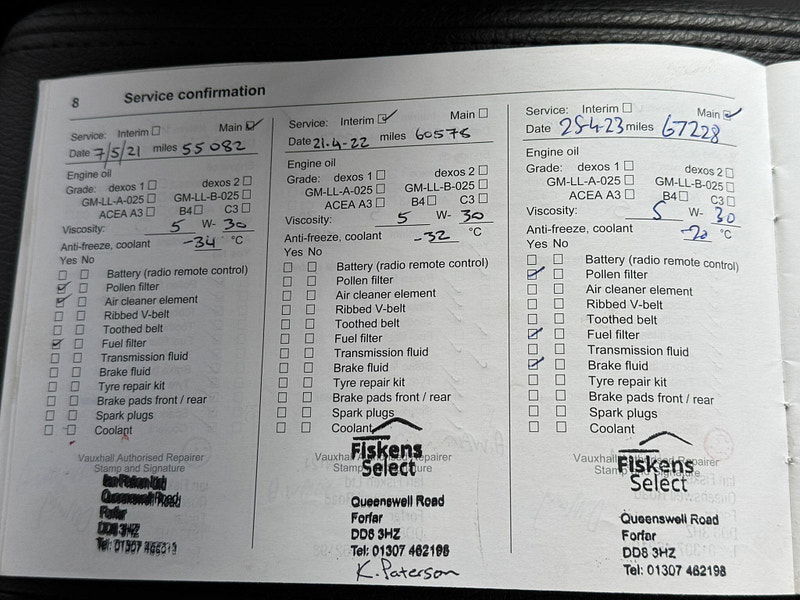 8 Service confirmation
Service: Interim Main
Date 7/5/21 miles 55082
Engine oil
Grade: dexos 1 dexos 2
GM-LL-A-025 GM-LL-B-025
ACEA A3 B4 C3
Viscosity: 5 W- 30
Anti-freeze, coolant -34 °C
Yes No
Battery (radio remote control)
Pollen filter
Air cleaner element
Ribbed V-belt
Toothed belt
Fuel filter
Transmission fluid
Brake fluid
Tyre repair kit
Brake pads front / rear
Spark plugs
Coolant
Vauxhall Authorised Repairer
Stamp and Signature
Queenswell Road
Forfar
DD8 3HZ
Tel: 01307
Service: Interim Main
Date 21.4.22 miles 60578
Engine oil
Grade: dexos 1 dexos 2
GM-LL-A-025 GM-LL-B-025
ACEA A3 B4 C3
Viscosity: 5 W- 30
Anti-freeze, coolant -32 °C
Yes No
Battery (radio remote control)
Pollen filter
Air cleaner element
Ribbed V-belt
Toothed belt
Fuel filter
Transmission fluid
Brake fluid
Tyre repair kit
Brake pads front / rear
Spark plugs
Coolant
Vauxhall Authorised Repairer
Stamp and Signature
Fiskens
Select
Queenswell Road
Forfar
DD8 3HZ
Tel: 01307 462198
K. Paterson
Service: Interim Main
Date 25-4-23 miles 67228
Engine oil
Grade: dexos 1 dexos 2
GM-LL-A-025 GM-LL-B-025
ACEA A3 B4 C3
Viscosity: 5 W- 30
Anti-freeze, coolant °C
Yes No
Battery (radio remote control)
Pollen filter
Air cleaner element
Ribbed V-belt
Toothed belt
Fuel filter
Transmission fluid
Brake fluid
Tyre repair kit
Brake pads front / rear
Spark plugs
Coolant
Vauxhall Authorised Repairer
Stamp and Signature
Fiskens
Select
Queenswell Road
Forfar
DD8 3HZ
Tel: 01307 462198